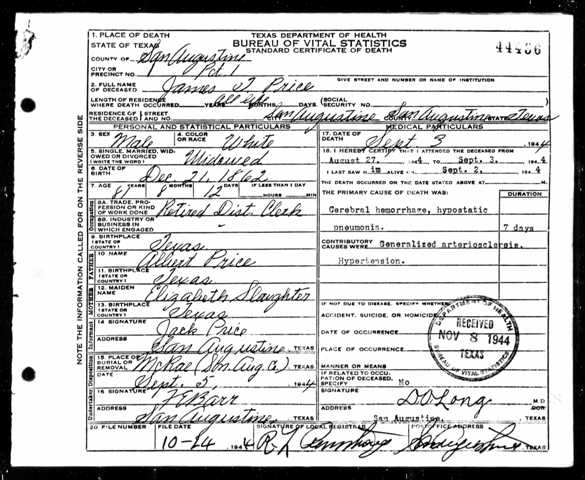 44466
TEXAS DEPARTMENT OF HEALTH
BUREAU OF VITAL STATISTICS
STANDARD CERTIFICATE OF DEATH
1. PLACE OF DEATH
STATE OF TEXAS
COUNTY OF San Augustine
CITY OR PRECINCT NO. Pct 1
GIVE STREET AND NUMBER OR NAME OF INSTITUTION
2. FULL NAME OF DECEASED James T. Price
LENGTH OF RESIDENCE WHERE DEATH OCCURRED YEARS MONTHS DAYS SOCIAL SECURITY NO.
RESIDENCE OF THE DECEASED STREET AND NO. San Augustine San Augustine STATE Texas
PERSONAL AND STATISTICAL PARTICULARS
3. SEX Male
4. COLOR OR RACE White
5. SINGLE, MARRIED, WIDOWED OR DIVORCED (WRITE THE WORD) Widowed
6. DATE OF BIRTH Dec. 21, 1862
7. AGE 81 YEARS 8 MONTHS 12 DAYS IF LESS THAN 1 DAY HOURS MIN
8A. TRADE, PROFESSION OR KIND OF WORK DONE Retired Dist. Clerk
8B. INDUSTRY OR BUSINESS IN WHICH ENGAGED -
9. BIRTHPLACE (STATE OR COUNTRY) Texas
10. NAME Albert Price
11. BIRTHPLACE (STATE OR COUNTRY) Texas
12. MAIDEN NAME Elizabeth Slaughter
13. BIRTHPLACE (STATE OR COUNTRY) Texas
14. SIGNATURE Jack Price
ADDRESS San Augustine TEXAS
15. PLACE OF BURIAL OR REMOVAL McRae (San Aug. Co.) TEXAS
DATE Sept. 5, 1944
16. SIGNATURE Barr
ADDRESS San Augustine TEXAS
MEDICAL PARTICULARS
17. DATE OF DEATH Sept 3 1944
18. I HEREBY CERTIFY THAT I ATTENDED THE DECEASED FROM
August 27, 1944 TO Sept. 3, 1944
I LAST SAW h im ALIVE ON Sept. 2, 1944
THE DEATH OCCURRED ON THE DATE STATED ABOVE AT M.
THE PRIMARY CAUSE OF DEATH WAS: DURATION
Cerebral hemorrhare, hypostatic
pneumonia. 7 days
CONTRIBUTORY CAUSES WERE: Generalized arteriosclerosis.
Hypertension.
IF NOT DUE TO DISEASE, SPECIFY WHETHER:
ACCIDENT, SUICIDE, OR HOMICIDE
DATE OF OCCURRENCE
PLACE OF OCCURRENCE
MANNER OR MEANS
IF RELATED TO OCCUPATION OF DECEASED, SPECIFY No
SIGNATURE D O Long M D
ADDRESS San Augustine, TEXAS
DEPARTMENT OF HEALTH
RECEIVED
NOV 8 1944
TEXAS
BUREAU OF VITAL STATISTICS
20 FILE NUMBER
FILE DATE 10-24 1944
SIGNATURE OF LOCAL REGISTRAR
POST OFFICE ADDRESS TEXAS
NOTE THE INFORMATION CALLED FOR ON THE REVERSE SIDE
Occupation
FATHER
MOTHER
Informant
Undertaker Disposition